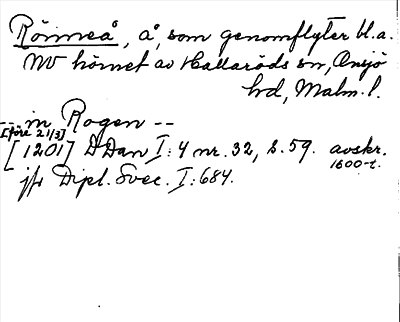 Rönneå, å, som genomflyter bl.a.
NV hörnet av Hallaröds sn, Onsjö
hd, Malm. l.
-- in Rogen --
[före 21/3]
[1201] DDan I:4 nr. 32, s. 59. avskr.
1600-t.
jfr Dipl. Svec. I:684.